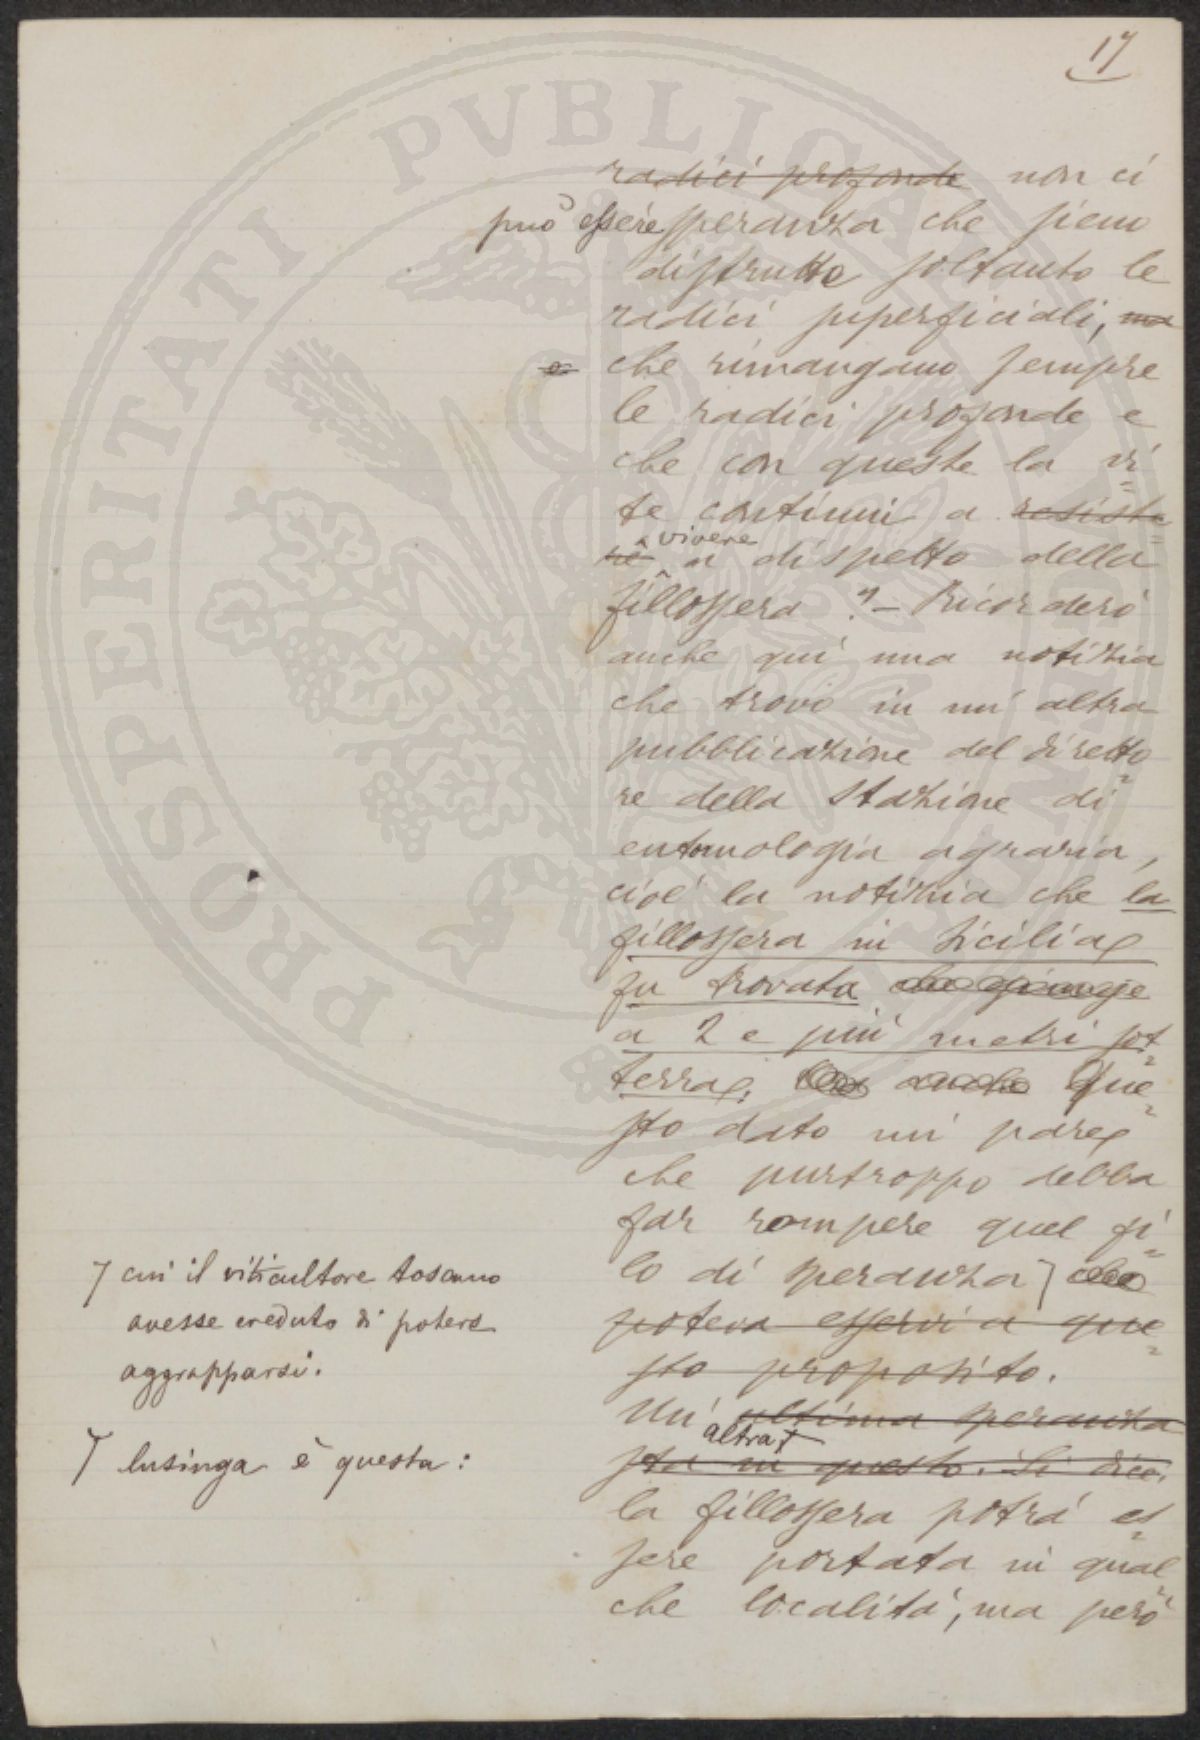 17
radici profonde non ci
può essere speranza che sieno
distrutte soltanto le
radici superficiali, ma
e che rimangano sempre
le radici profonde e
che con queste la vi=
te continui a resiste=
re vivere a dispetto della
fillossera ? — Ricorderò
anche quì una notizia
che trovo in un' altra
pubblicazione del diretto=
re della Stazione di
entomologia agraria,
cioè la notizia che la
fillossera in Sicilia
fu trovata che giunge
a 2 e più metri sot=
terra. anche Que=
sto dato mi pare
che purtroppo debba
far rompere quel fi=
lo di speranza ⁊ che
⁊ cui il viticultore toscano
avesse creduto di potere
aggrapparsi.
poteva esservi a que=
sto proposito.
Un' ultima speranza
altra ⁊
⁊ lusinga è questa:
sta in questo. Si dice:
la fillossera potrà es=
sere portata in qual=
che località, ma però
PROSPERITATI PVBLICAE